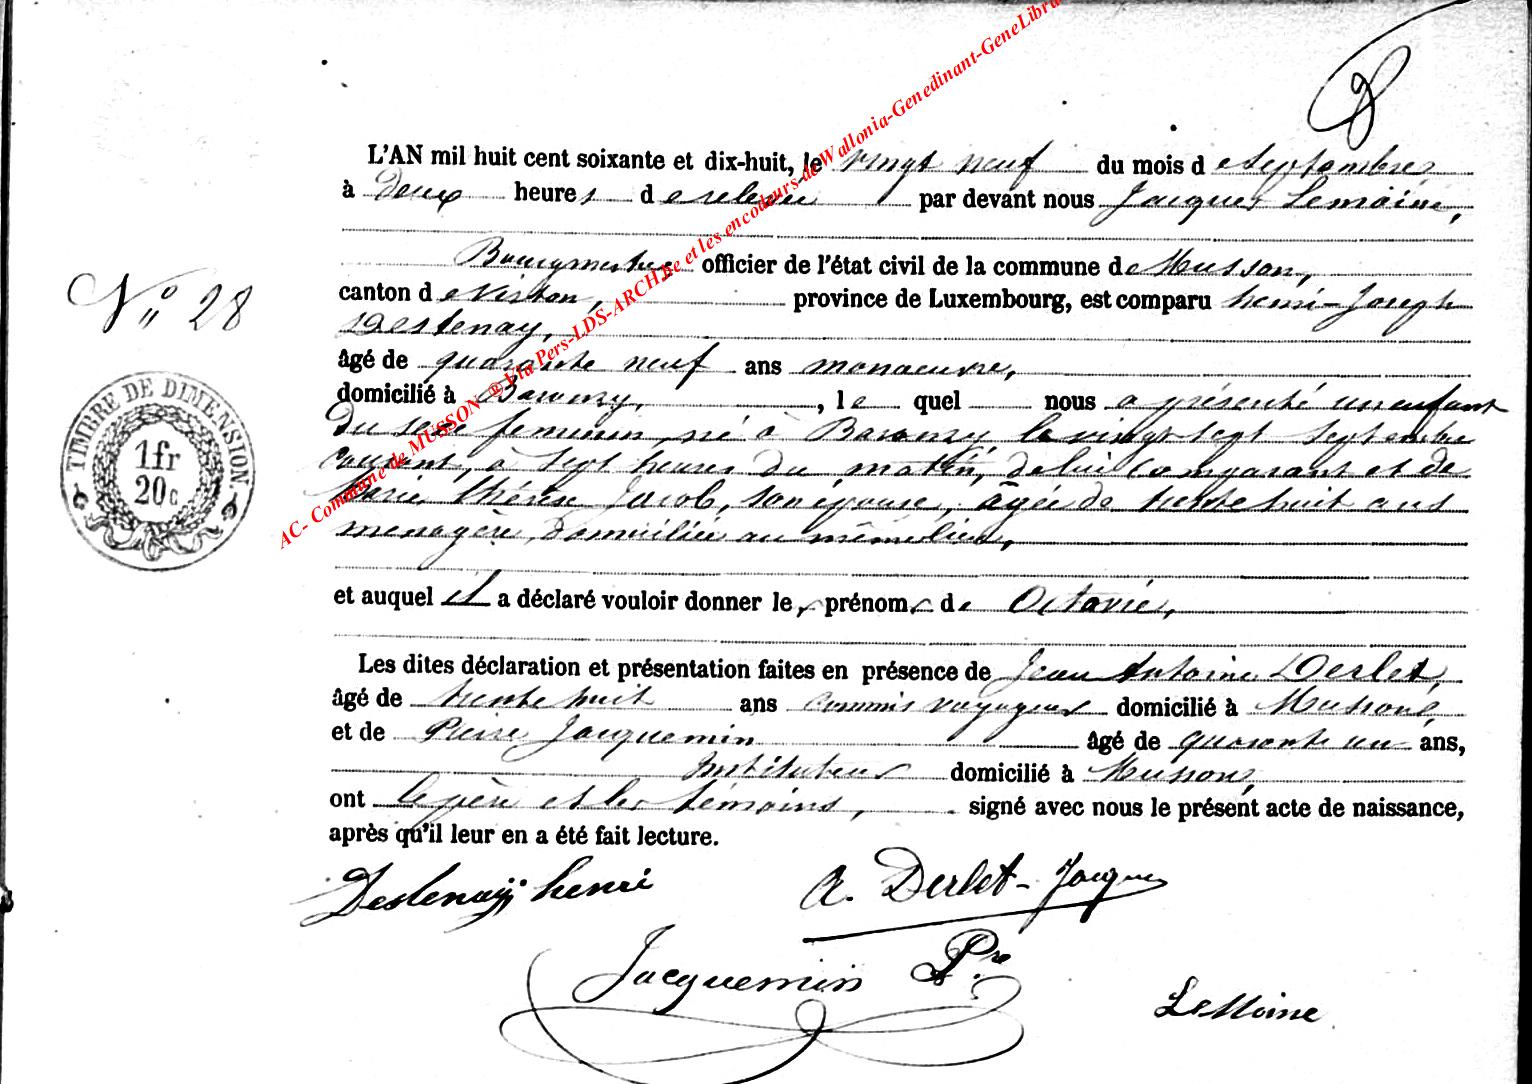 L'AN mil huit cent soixante et dix-huit, le vingt neuf du mois de Septembre
à Deux heures de relevée par devant nous Jacques Lemoine,
Bourgmestre officier de l'état civil de la commune de Musson,
N° 28
canton de Virton, province de Luxembourg, est comparu henri-Joseph
Destenay,
âgé de quarante neuf ans manoeuvre,
domicilié à Baranzy, , le quel nous a présenté un enfant
du sexe feminin, né à Baranzy le vingt sept Septembre
courant, à sept heures du matin, de lui Comparant et de
Marie thérèse Jacob, son épouse, âgée de trente huit ans
menagère, domiciliée au même lieu,
TIMBRE DE DIMENSION
1fr
20c
et auquel il a déclaré vouloir donner le prénom de Octavie,
Les dites déclaration et présentation faites en présence de Jean Antoine Derlet,
âgé de trente huit ans commis voyageur domicilié à Musson,
et de Pierre Jacquemin âgé de quarante un ans,
Instituteur domicilié à Musson,
ont le père et les témoins, signé avec nous le présent acte de naissance,
après qu'il leur en a été fait lecture.
Destenay henri A. Derlet-Jacques
Jacquemin Pre
LeMoine
AC- Commune de MUSSON ® Via Pers-LDS-ARCH.be et les encodeurs de Wallonia-Genedinant-GeneLibra